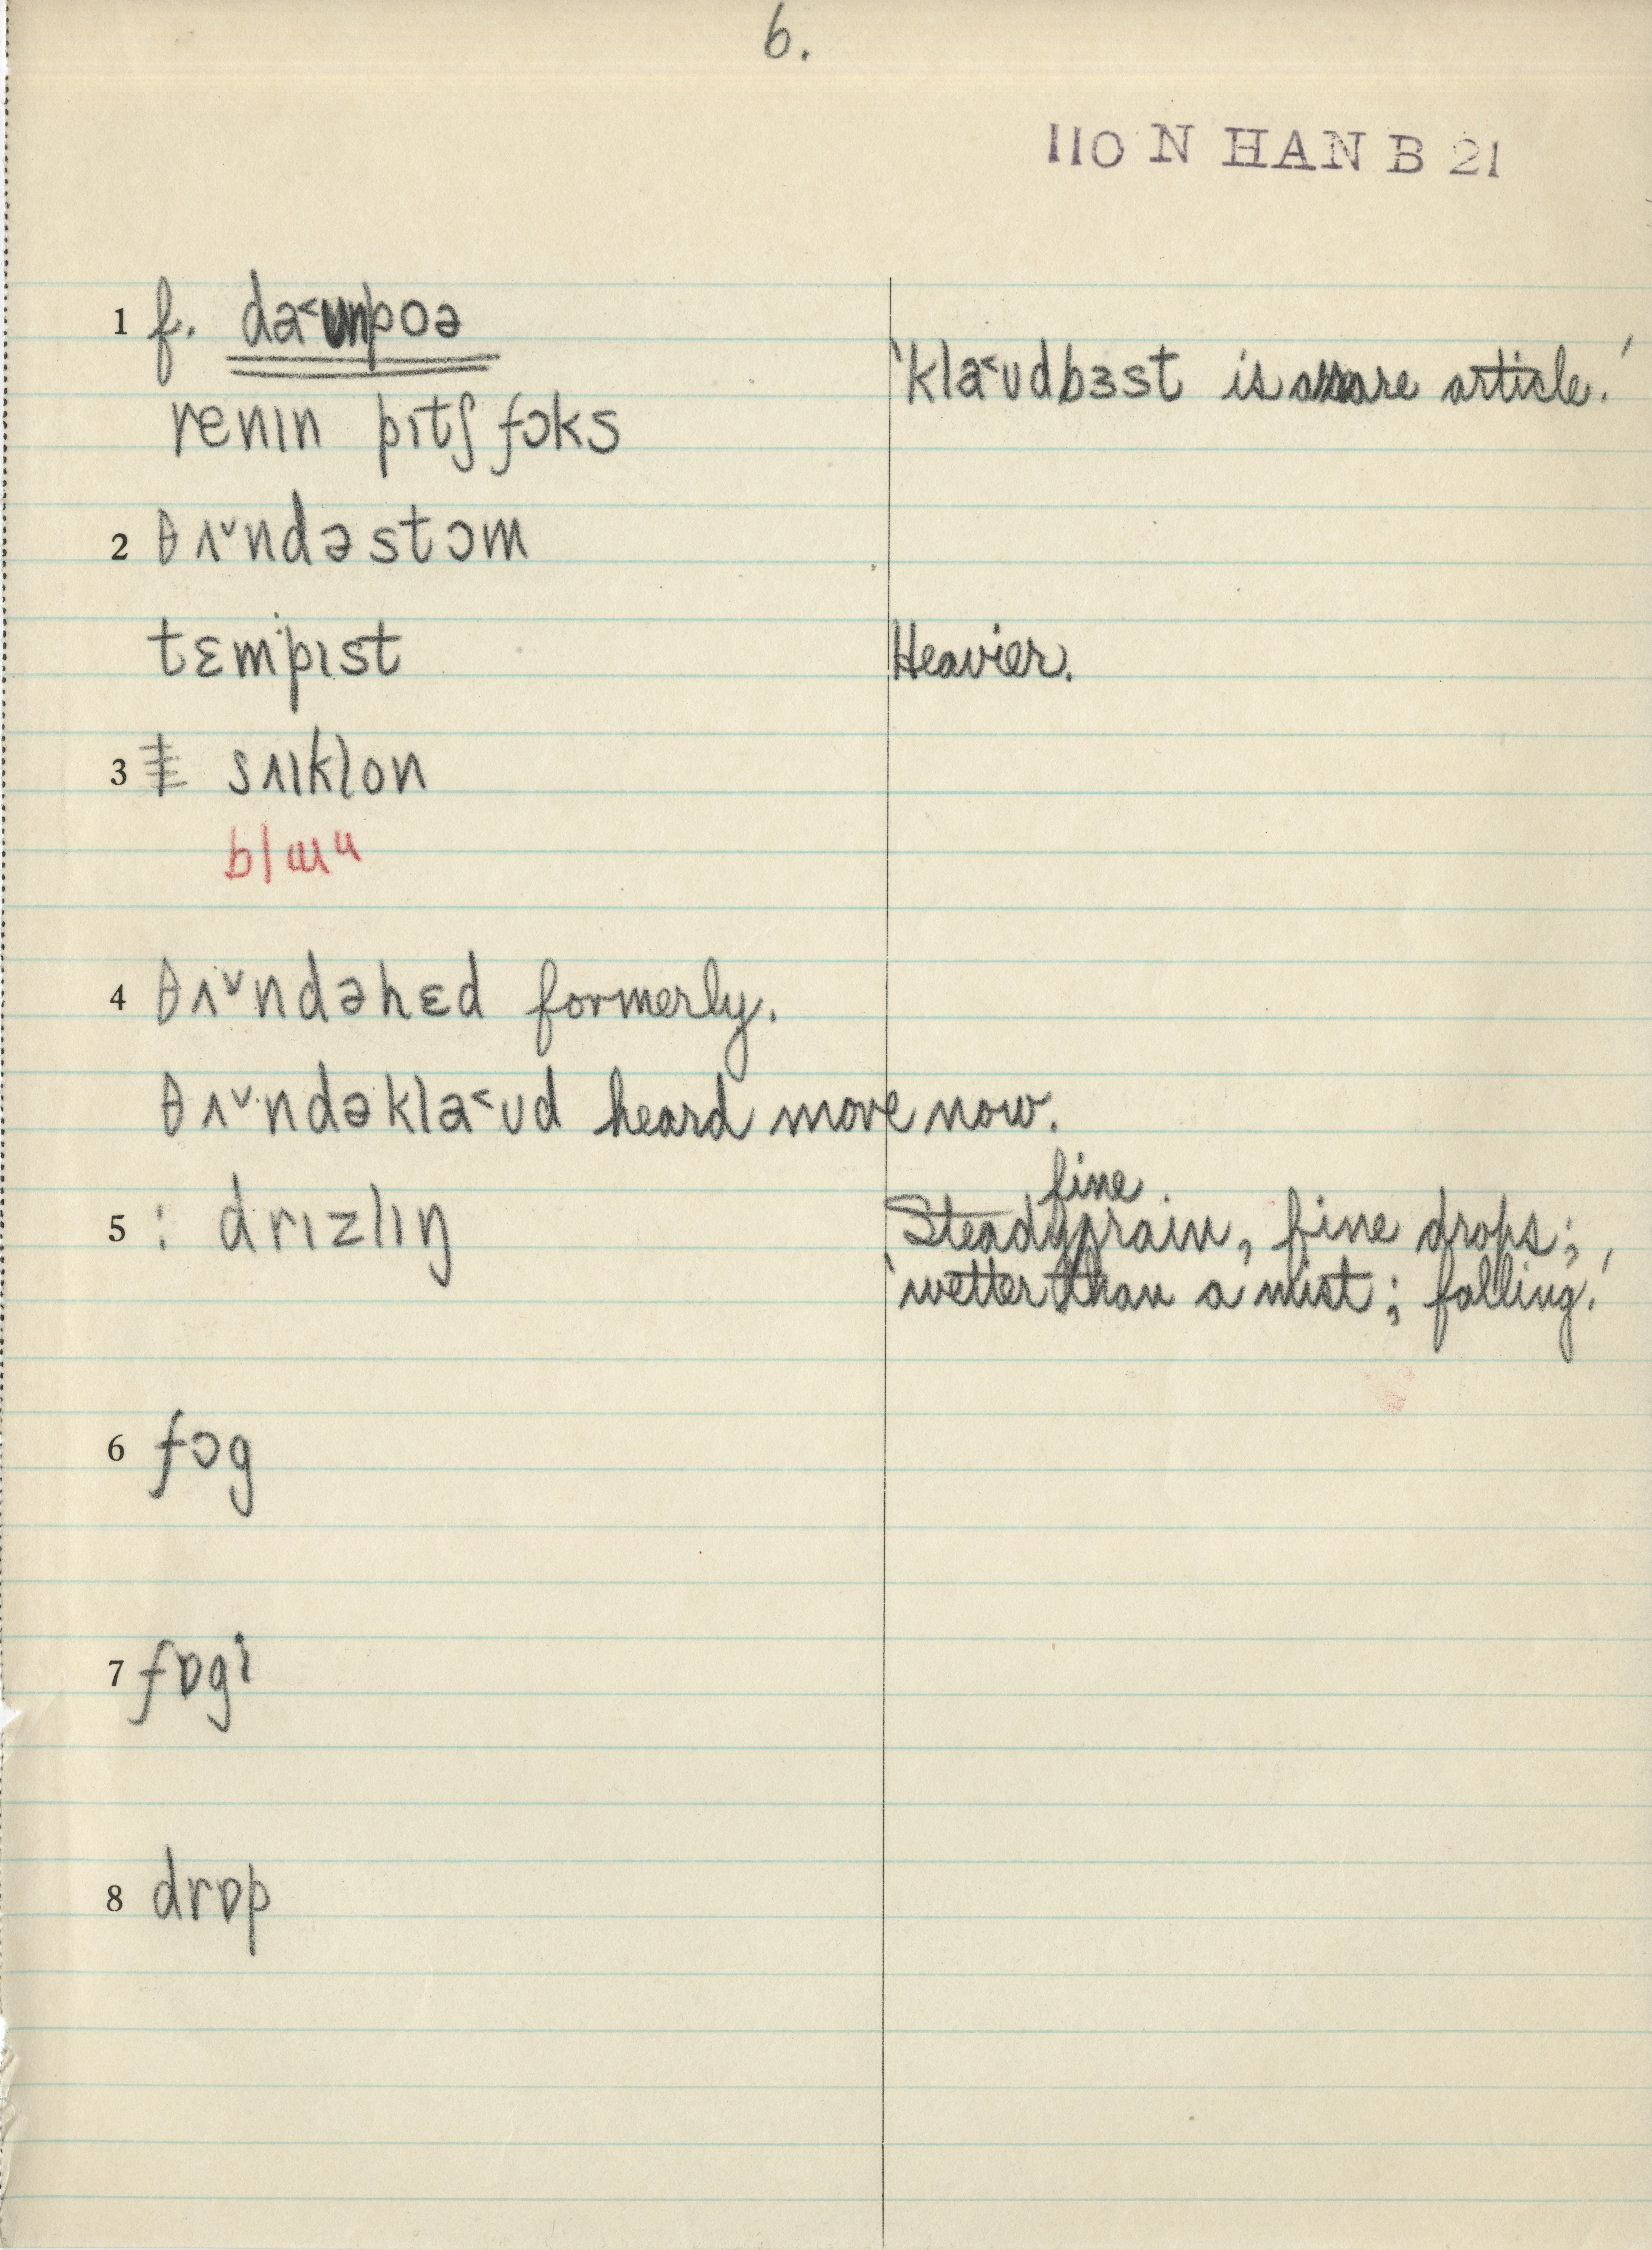 6.
110 N HAN B 21
1 f. da˂ʊnpoə
'kla˂ʊdbɜst is a rare article.'
renɪn pɪtʃfɔks
2 θʌ˅ndəstɔm
tɛmpɪst
Heavier.
3 ‡ sʌɪklon
4 θʌ˅ndəhɛd formerly.
θʌ˅ndəkla˂ʊd heard more now.
fine
5 : drɪzlɪŋ
Steady rain, fine drops;
'wetter than a mist; falling.'
6 fɔg
7 fɒgi
8 drɒp